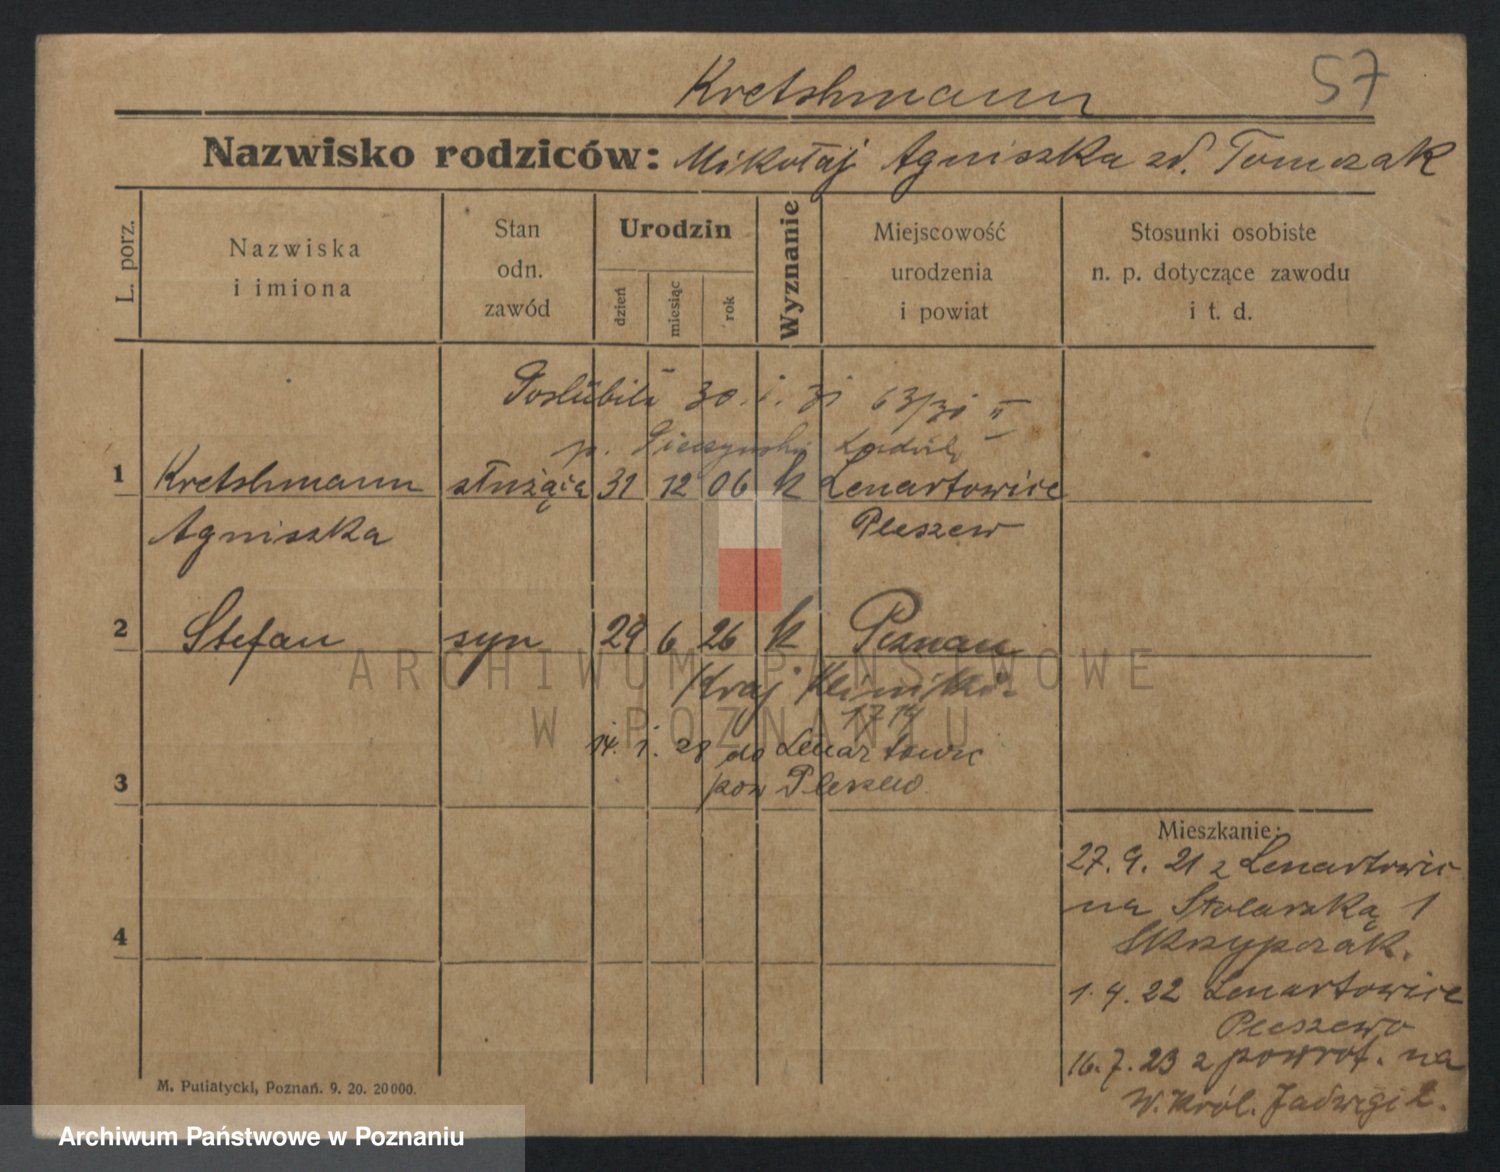 57
Kretshmann
Nazwisko rodziców: Mikołaj Agniszka zd. Tomczak
L. porz.
Nazwiska
i imiona
Stan
odn.
zawód
Urodzin
dzień
miesiąc
rok
Wyznanie
Miejscowość
urodzenia
i powiat
Stosunki osobiste
n. p. dotyczące zawodu
i t. d.
Poślubiła 30. i. 31 63/31 II
p.
1 Kretshmann służąca 31 12 06 k Lenartowice
Agniszka Pleszew
2 Stefan syn 29 6 26 k Poznan
Kraj Klinika
1714
14. 1. 28 do Lenartowic
3 pow Pleszew
4
Mieszkanie:
27. 9. 21 z Lenartowic
na Stolarską 1
Skrzypczak.
1. 4. 22 Lenartowice
Pleszewo
16. 7. 23 z powrot. na
W. Król. Jadwigi 2.
M. Putiatycki, Poznań. 9. 20. 20000.
ARCHIWUM PAŃSTWOWE
W POZNANIU
Archiwum Państwowe w Poznaniu